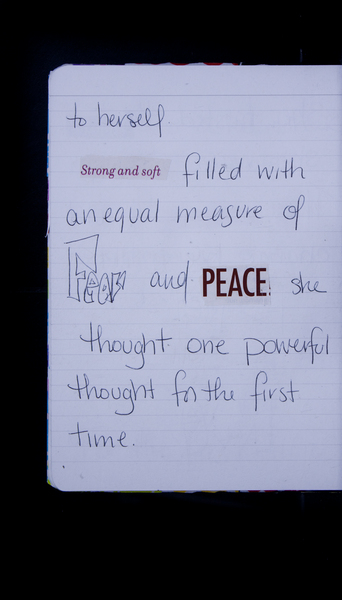 to herself.
Strong and soft filled with
an equal measure of
Fear and PEACE. she
thought one powerful
thought for the first
time.